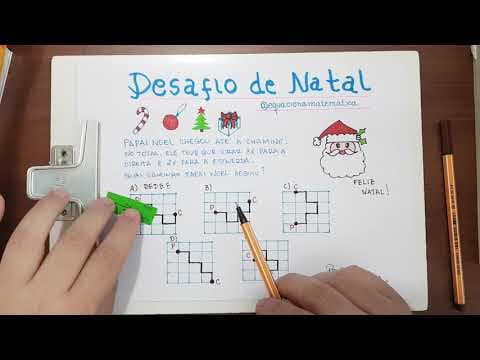 Desafio de Natal
@equacionamatemática
PAPAI NOEL CHEGOU ATÉ A CHAMINÉ.
NO TOTAL, ELE TEVE QUE VIRAR 3X PARA A
DIREITA E 2X PARA A ESQUERDA.
QUAL CAMINHO PAPAI NOEL SEGUIU?
FELIZ
NATAL!
A) B) C)
C
P C
C P
D)
P C